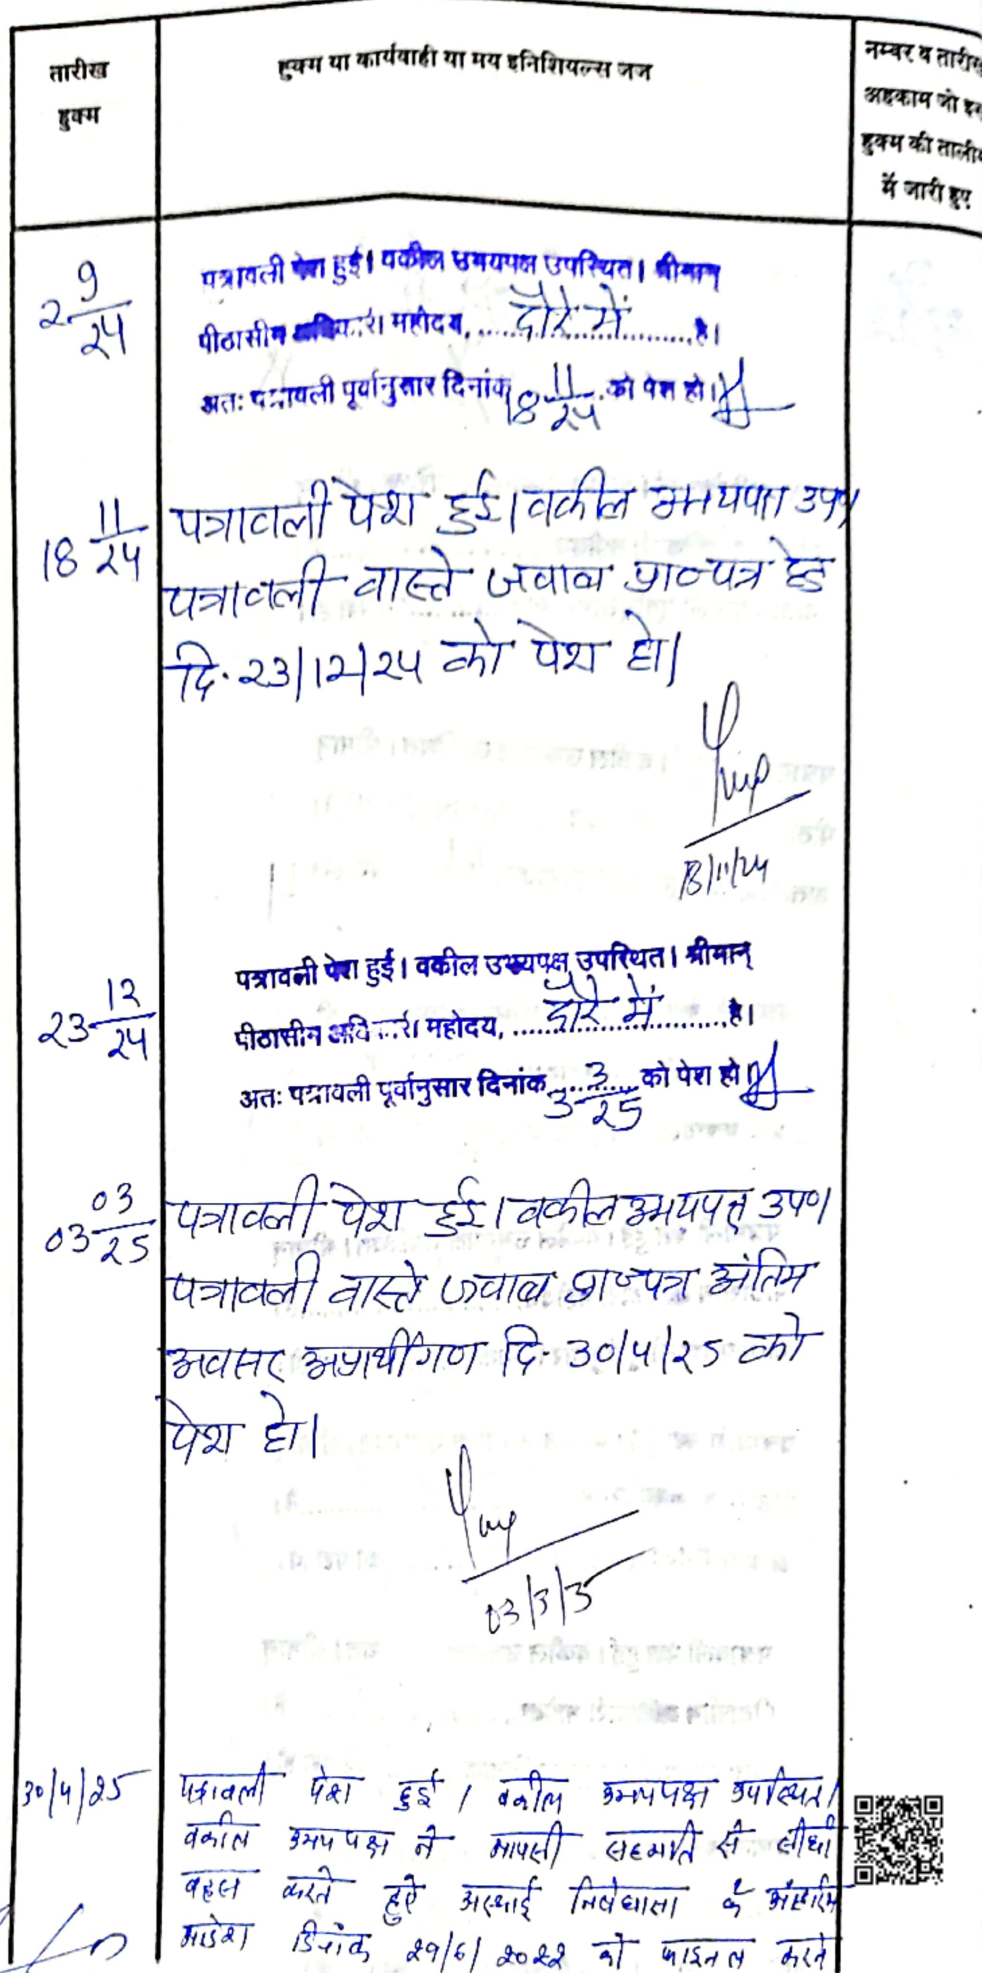 तारीख
हुक्म
हुक्म या कार्यवाही या मय इनिशियल्स जज
नम्बर व तारीख
अहकाम जो इस
हुक्म की तालीम
में जारी हुए
2 9/24
पत्रावली पेश हुई। वकील उभयपक्ष उपस्थित। श्रीमान्
पीठासीन अधिकारी महोदय, दौरे में है।
अतः पत्रावली पूर्वानुसार दिनांक 18 11/24 को पेश हो।
18 11/24
पत्रावली पेश हुई। वकील उभयपक्ष उप०
पत्रावली वास्ते जवाब प्रा०पत्र हेतु
दि. 23/12/24 को पेश हो।
18/11/24
23 12/24
पत्रावली पेश हुई। वकील उभयपक्ष उपस्थित। श्रीमान्
पीठासीन अधिकारी महोदय, दौरे में है।
अतः पत्रावली पूर्वानुसार दिनांक 3 3/25 को पेश हो।
03 03/25
पत्रावली पेश हुई। वकील उभयपक्ष उप०।
पत्रावली वास्ते जवाब प्रा०पत्र अंतिम
अवसर अप्रार्थीगण दि. 30/4/25 को
पेश हो।
30/4/25
पत्रावली पेश हुई। वकील उभयपक्ष उपस्थित।
वकील उभयपक्ष ने आपसी सहमति से सीधी
बहस करते हुऐ अस्थाई निषेधाज्ञा के अंतरिम
आदेश दिनांक 29/6/2022 को फाइनल करने